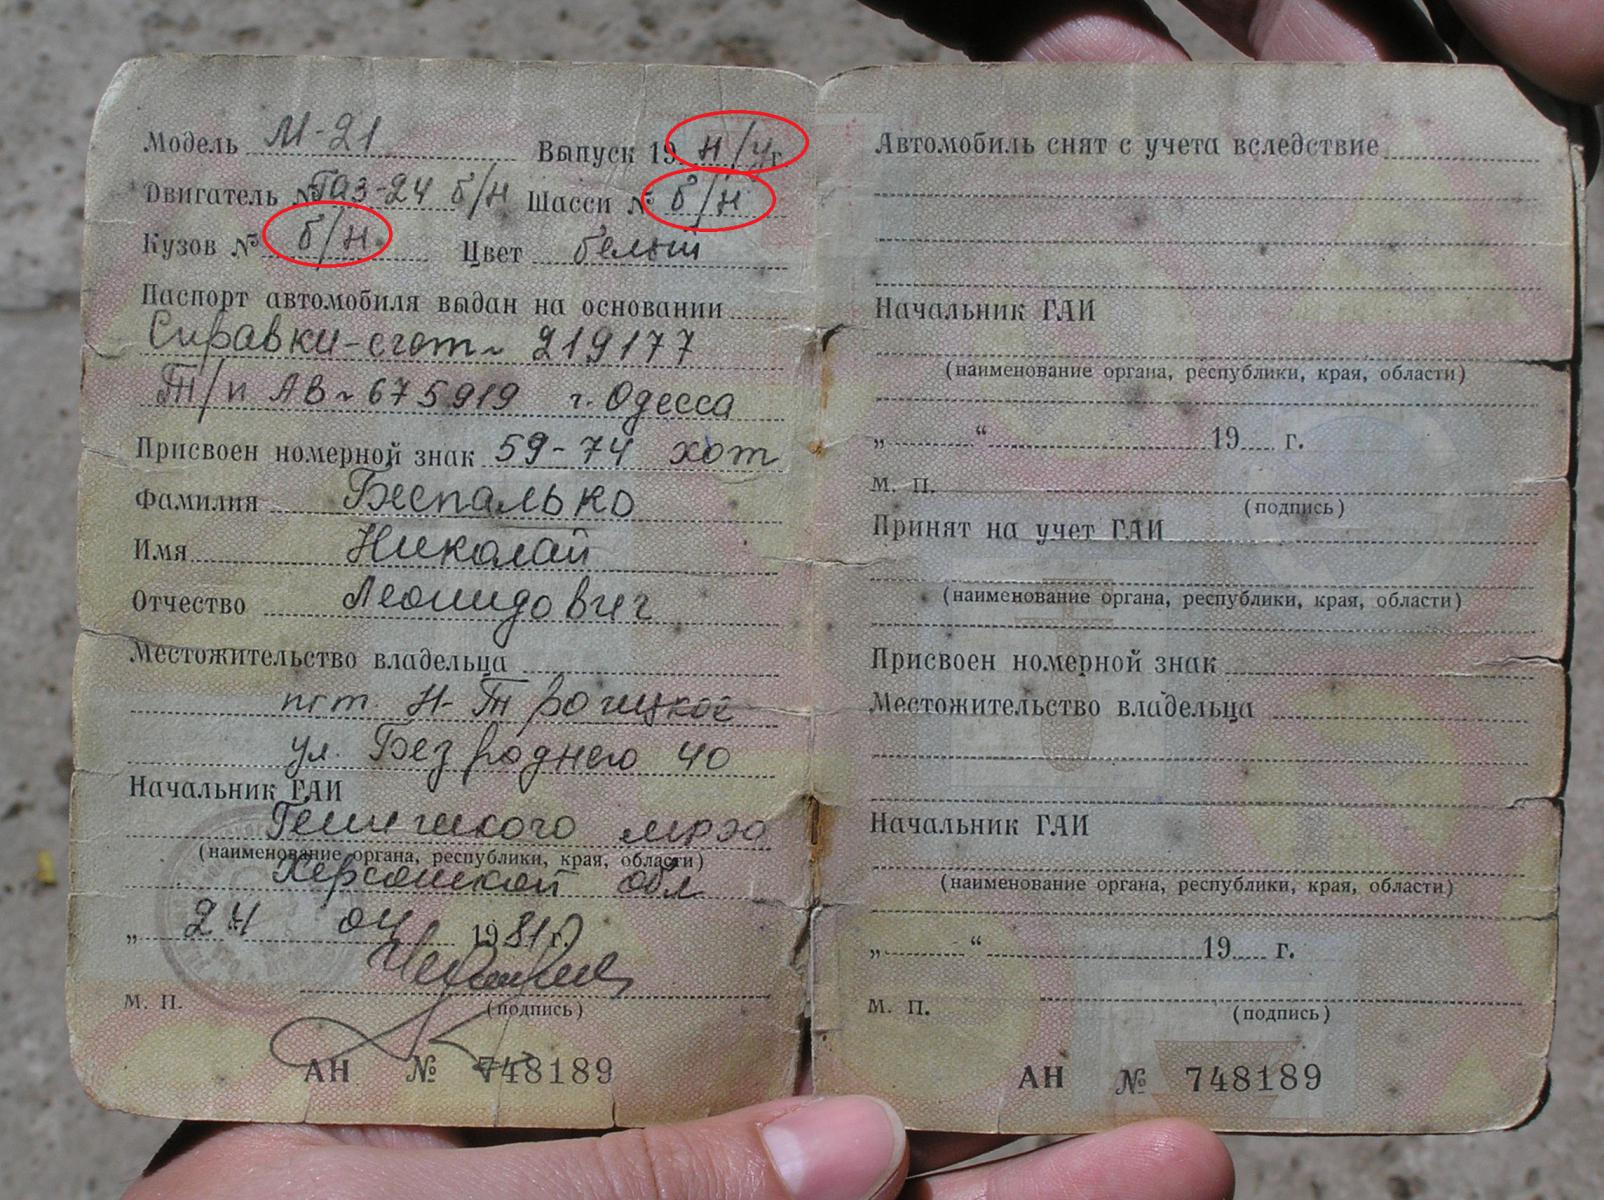 Модель М-21 Выпуск 19 н/у г.
Двигатель № Газ-24 б/н Шасси № б/н
Кузов № б/н. Цвет белый
Паспорт автомобиля выдан на основании
Справки-счет~ 219177
Т/п АВ~675919 г. Одесса
Присвоен номерной знак 59-74 хот
Фамилия Беспалько
Имя Николай
Отчество Леонидович
Местожительство владельца
пгт Н-Троицкое
ул. Безроднего 40
Начальник ГАИ
Генического мрэо
(наименование органа, республики, края, области)
Херсонской обл
„24 04 1981 г.
М. П.
(подпись)
АН № 748189
Автомобиль снят с учета вследствие
Начальник ГАИ
(наименование органа, республики, края, области)
„ “ 19 г.
М. П.
(подпись)
Принят на учет ГАИ
(наименование органа, республики, края, области)
Присвоен номерной знак
Местожительство владельца
Начальник ГАИ
(наименование органа, республики, края, области)
„ “ 19 г.
М. П.
(подпись)
АН № 748189